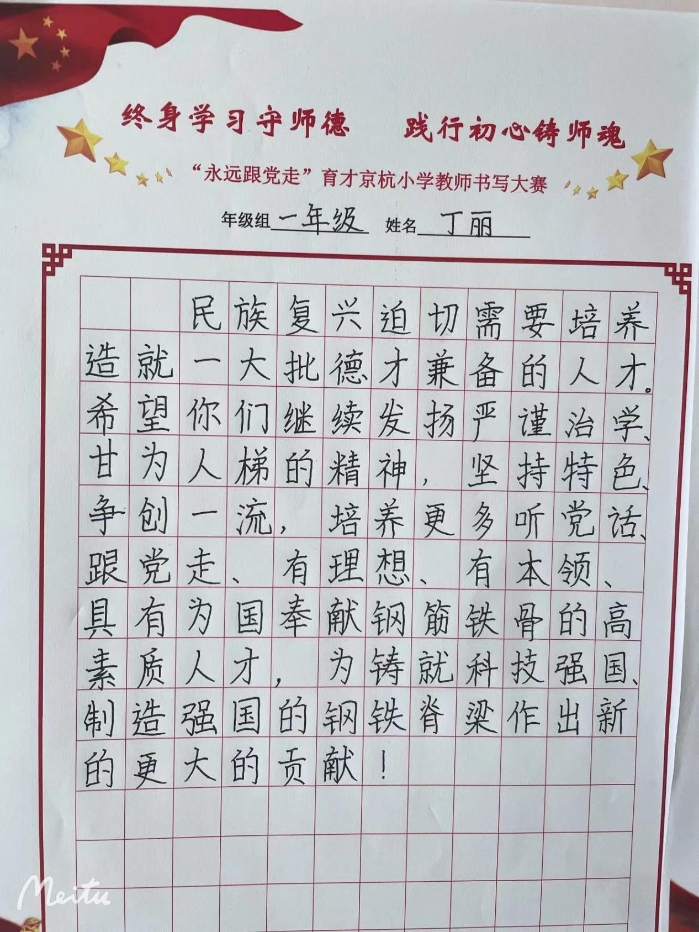 终身学习守师德 践行初心铸师魂
“永远跟党走”育才京杭小学教师书写大赛
年级组 一年级 姓名 丁丽
民族复兴迫切需要培养
造就一大批德才兼备的人才。
希望你们继续发扬严谨治学、
甘为人梯的精神，坚持特色、
争创一流，培养更多听党话、
跟党走、有理想、有本领、
具有为国奉献钢筋铁骨的高
素质人才，为铸就科技强国、
制造强国的钢铁脊梁作出新
的更大的贡献！
Meitu